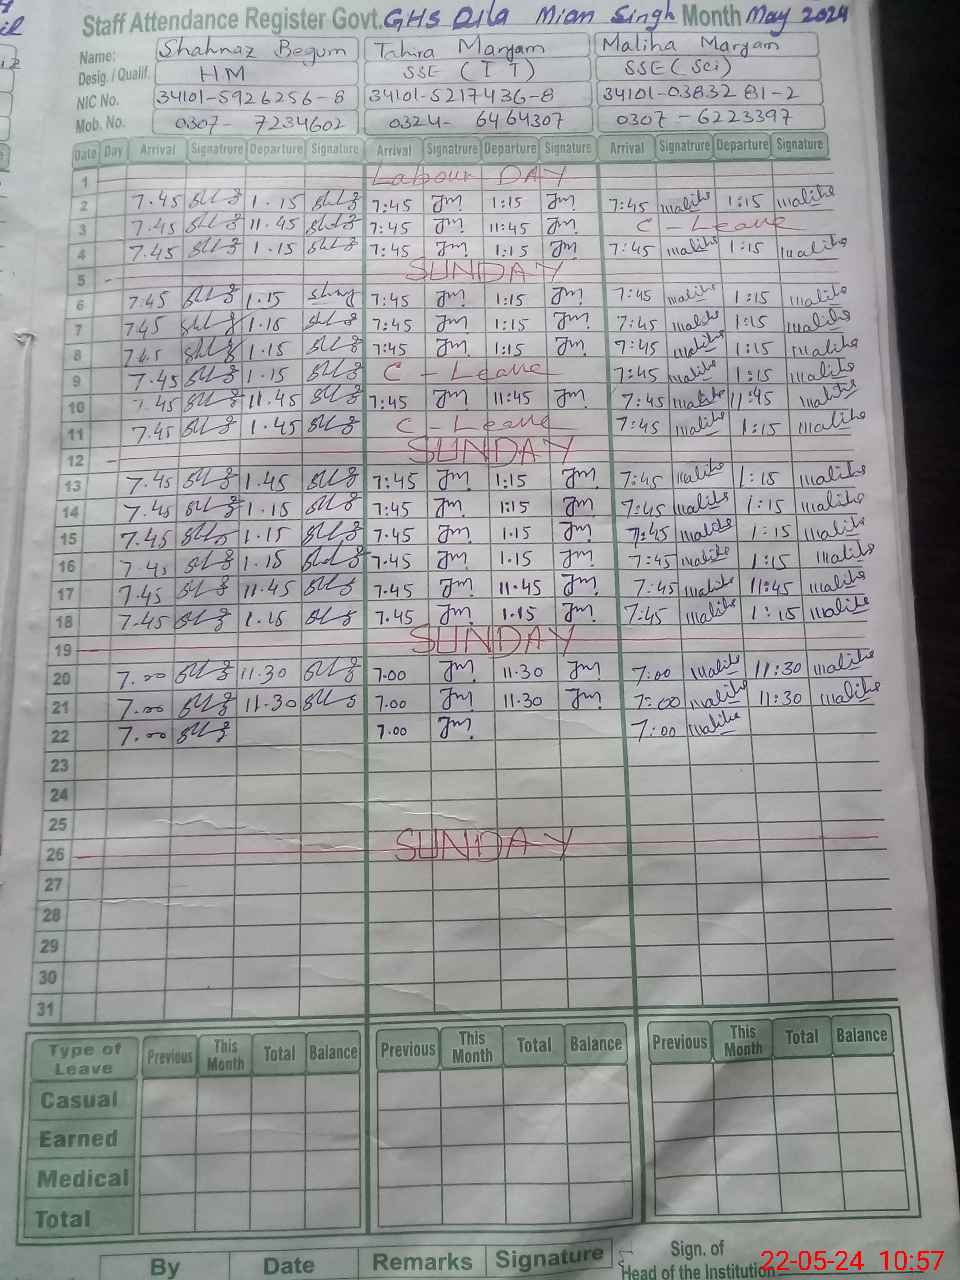 Staff Attendance Register Govt. GHS Qila Mian Singh Month May 2024
Name: Shahnaz Begum Tahira Maryam Maliha Maryam
Desig. / Qualif. HM SSE (IT) SSE (Sci)
NIC No. 34101-5926256-8 34101-5217436-8 34101-0383281-2
Mob. No. 0307- 7234602 0324- 6464307 0307 - 6223397
Date Day Arrival Signatrure Departure Signature Arrival Signatrure Departure Signature Arrival Signatrure Departure Signature
1 Labour DAY
2 7.45 1.15 7:45 Jm 1:15 Jm 7:45 maliha 1:15 maliha
3 7.45 11.45 7:45 Jm 11:45 Jm C - Leave
4 7.45 1.15 7:45 Jm 1:15 Jm 7:45 maliha 1:15 maliha
5 SUNDAY
6 7.45 1.15 7:45 Jm 1:15 Jm 7:45 maliha 1:15 maliha
7 7.45 1.15 7:45 Jm 1:15 Jm 7:45 maliha 1:15 maliha
8 7.45 1.15 7:45 Jm 1:15 Jm 7:45 maliha 1:15 maliha
9 7.45 1.15 C - Leave 7:45 maliha 1:15 maliha
10 7.45 11.45 7:45 Jm 11:45 Jm 7:45 maliha 11:45 maliha
11 7.45 1.45 C - Leave 7:45 maliha 1:15 maliha
12 SUNDAY
13 7.45 1.45 7:45 Jm 1:15 Jm 7:45 maliha 1:15 maliha
14 7.45 1.15 7:45 Jm 1:15 Jm 7:45 maliha 1:15 maliha
15 7.45 1.15 7.45 Jm 1.15 Jm 7:45 maliha 1:15 maliha
16 7.45 1.15 7.45 Jm 1.15 Jm 7:45 maliha 1:15 maliha
17 7.45 11.45 7.45 Jm 11.45 Jm 7:45 maliha 11:45 maliha
18 7.45 1.15 7.45 Jm 1.15 Jm 7:45 maliha 1:15 maliha
19 SUNDAY
20 7.00 11.30 7.00 Jm 11.30 Jm 7:00 maliha 11:30 maliha
21 7.00 11.30 7.00 Jm 11.30 Jm 7:00 maliha 11:30 maliha
22 7.00 7.00 Jm 7:00 maliha
23
24
25
26 SUNDAY
27
28
29
30
31
Type of Leave Previous This Month Total Balance Previous This Month Total Balance Previous This Month Total Balance
Casual
Earned
Medical
Total
By Date Remarks Signature Sign. of
Head of the Institution
22-05-24 10:57